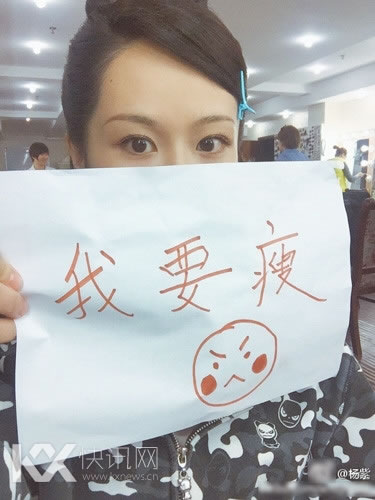 我要瘦
@杨紫
KX 快讯网
www.kxnews.cn